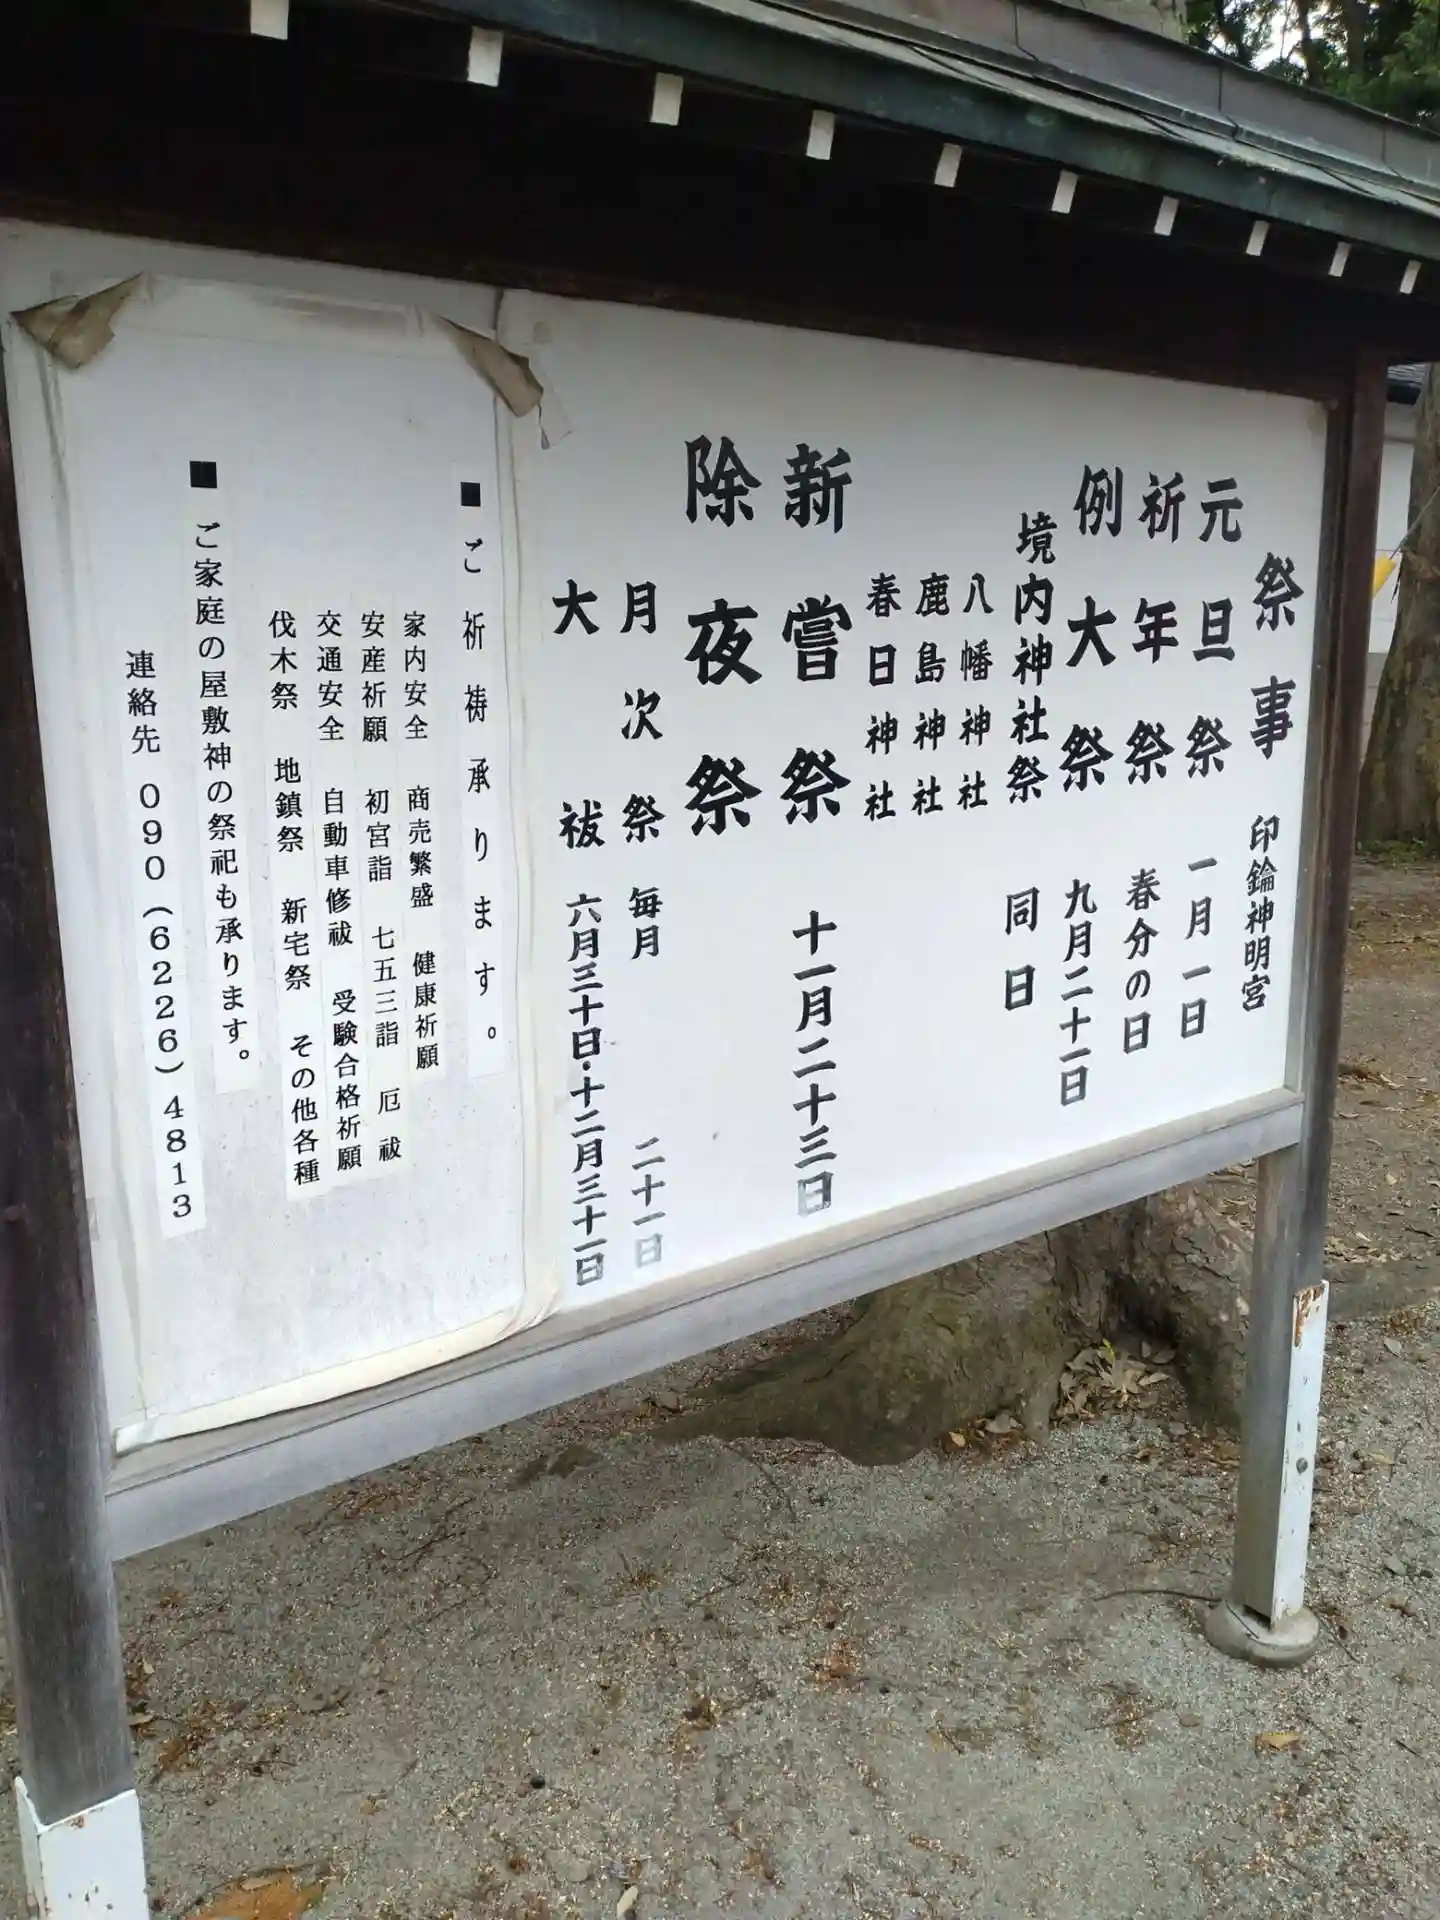 祭事 印鑰神明宮
元旦祭 一月一日
祈年祭 春分の日
例大祭 九月二十一日
境内神社祭 同日
八幡神社
鹿島神社
春日神社
新嘗祭 十一月二十三日
除夜祭
月次祭 毎月 二十一日
大祓 六月三十日・十二月三十一日
■ご祈祷承ります。
家内安全 商売繁盛 健康祈願
安産祈願 初宮詣 七五三詣 厄祓
交通安全 自動車修祓 受験合格祈願
伐木祭 地鎮祭 新宅祭 その他各種
■ご家庭の屋敷神の祭祀も承ります。
連絡先 090(6226)4813